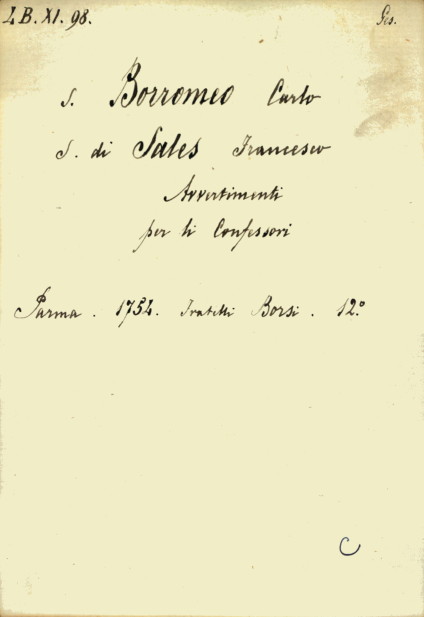 L B. XI. 98. Ges.
S. Borromeo Carlo
S. di Sales Francesco
Avvertimenti
per li Confessori
Parma. 1754. Fratelli Borsi. 12.°
C